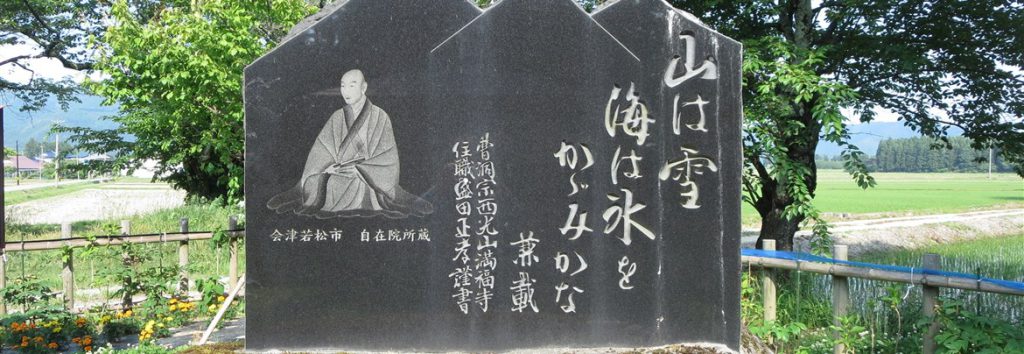 山は雪
海は氷を
かゞみかな
兼載
曹洞宗西光山満福寺
住職盛田正孝謹書
会津若松市 自在院所蔵